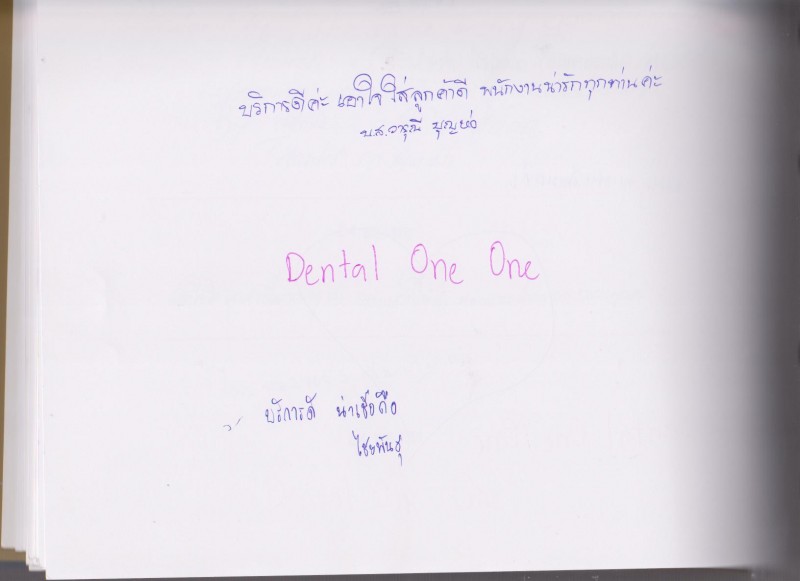 บริการดีค่ะ เอาใจใส่ลูกค้าดี พนักงานน่ารักทุกท่านค่ะ
น.ส.อรุณี บุญห่อ
Dental One One
บริการดี น่าเชื่อถือ
ไชยพันธุ์